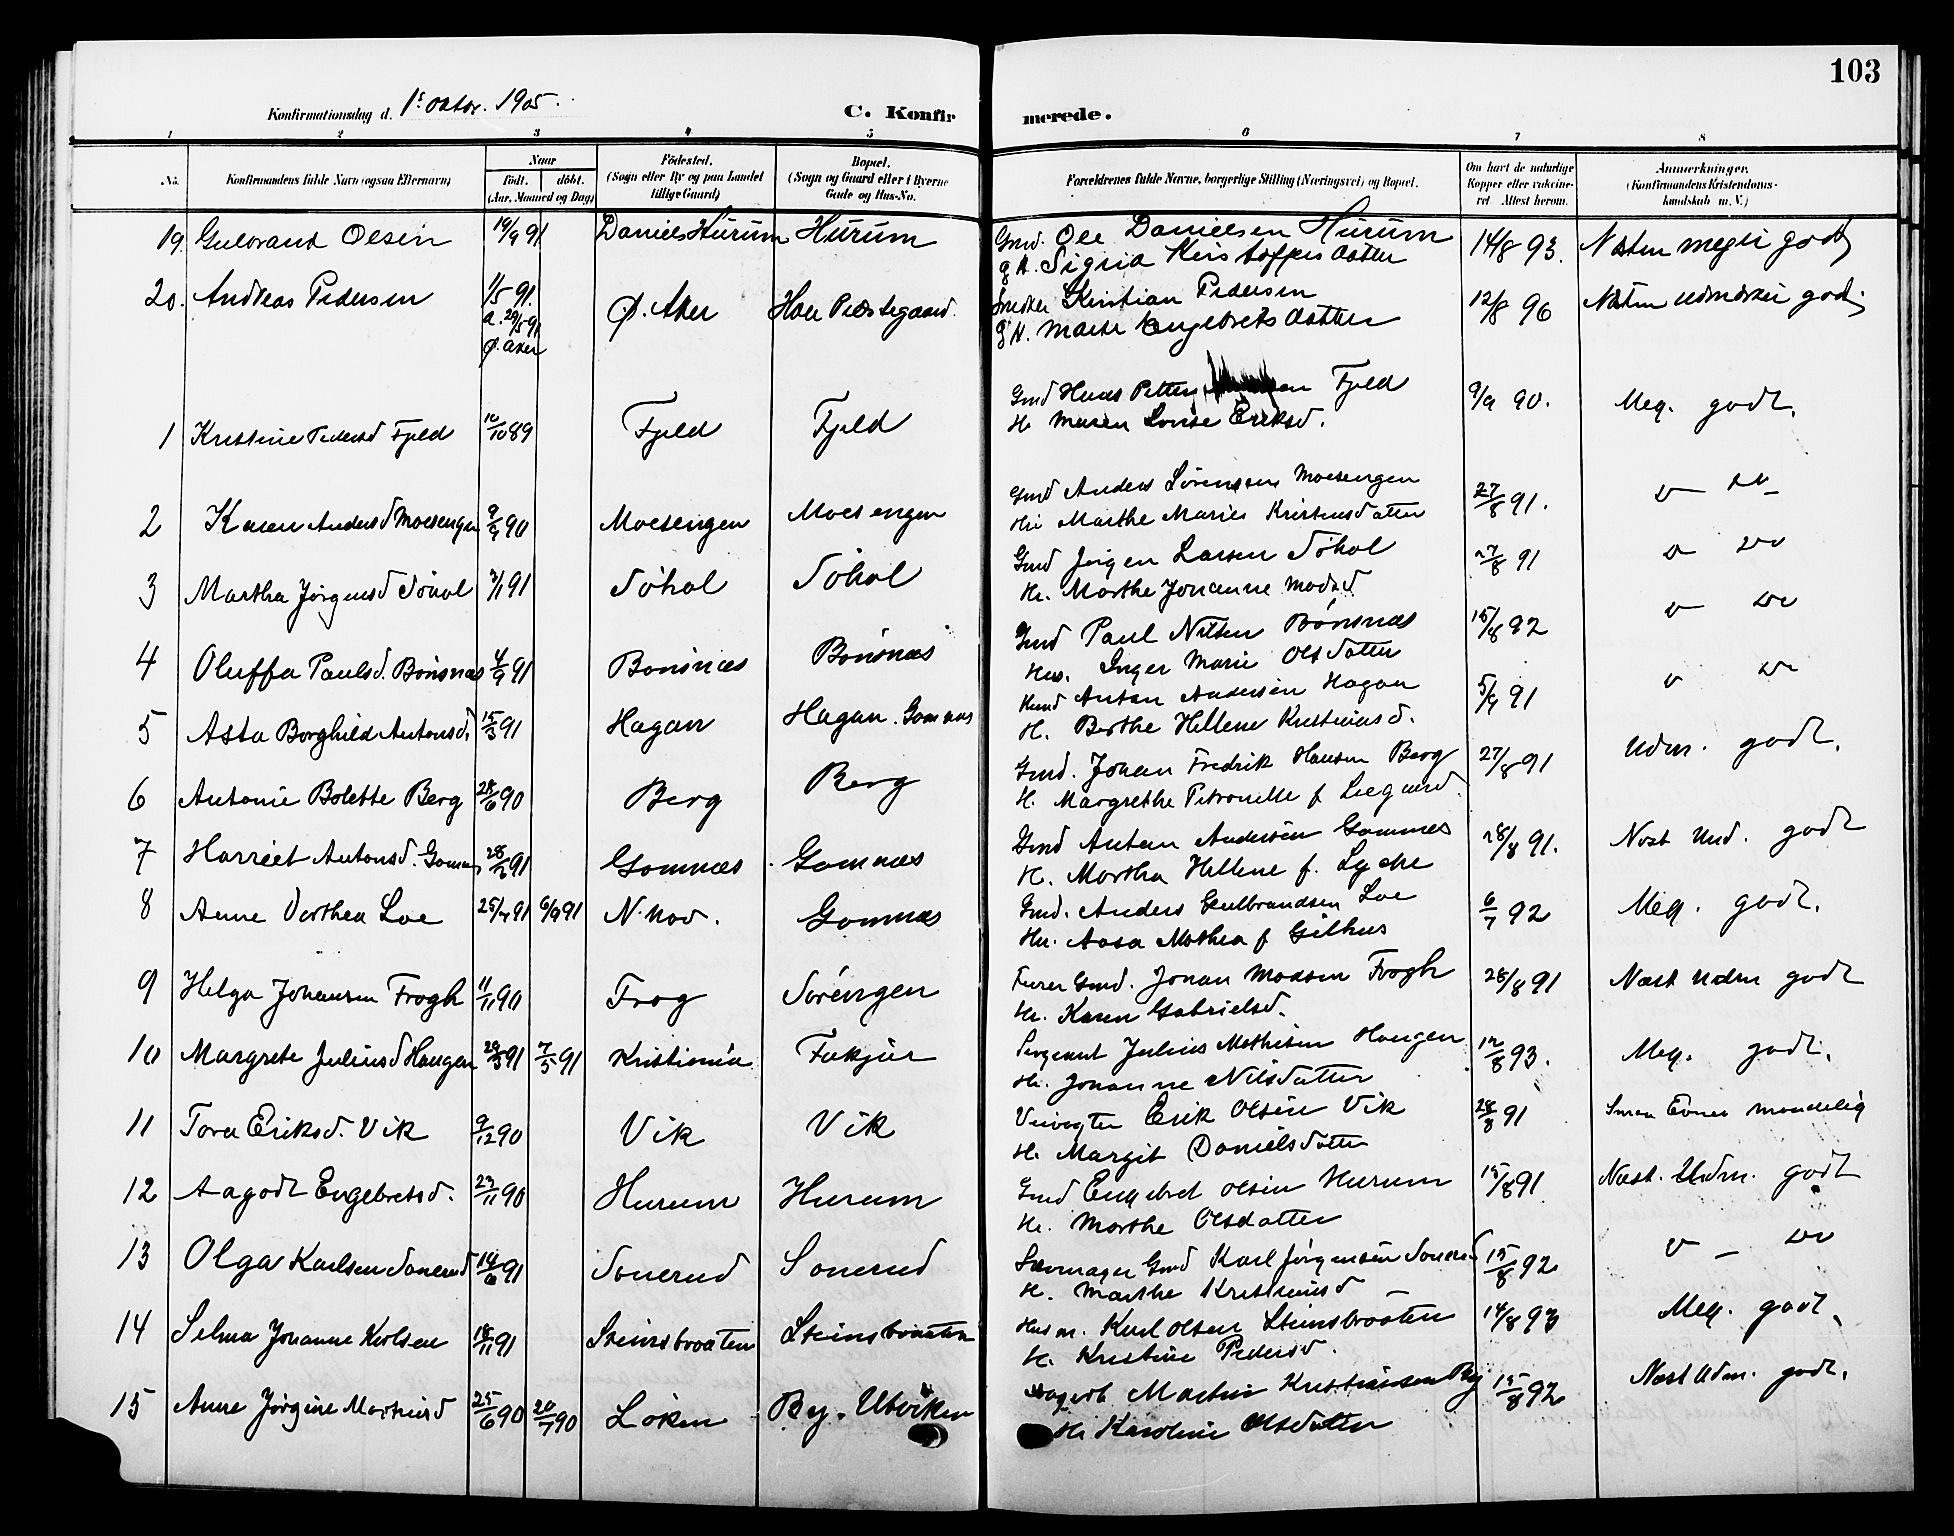 103
Konfirmationsdag d. 1s oktbr. 1905.
C. Konfirmerede.
1 2 3 4 5 6 7 8
No. Konfirmandens fulde Navn (ogsaa Efternavn) Naar født. døbt. (Aar, Maaned og Dag) Födested. (Sogn eller By og paa Landet tillige Gaard) Bopæl. (Sogn og Gaard eller i Byerne Gade og Hus-No. Forældrenes fulde Navne, borgerlige Stilling (Næringsvei) og Bopæl. Om havt de naturlige Kopper eller vaksineret. Attest herom. Anmærkninger. (Konfirmandens Kristendomskundskab m. V.)
19. Gulbrand Olsen 19/9 91 Daniels Hurum Hurum Gmd. Ole Danielsen Hurum 14/8 93. Næsten meget godt
g H. Sigrid Kristoffersdatter
20. Andreas Pedersen 1/5 91. Ø. Aker Hole Præstegaard. Smed Kristian Pedersen 12/8 96 Næsten udmærket godt
a. 29/5 91 g H. Marte Engebretsdatter
Ø. Aker
1 Kristine Pedersd Fjeld 12/10 89 Fjeld Fjeld Gmd Hans Petter Fjeld 9/9 90. Meg. godt.
H. Maren Lovise Eriksd.
2 Karen Andersd Moesengen 9/9 90 Moesengen Moesengen Gmd Anders Sørenssen Moesengen 27/8 91.
Hu Marthe Marie Kristensdatter
3 Martha Jørgensd Søhol 3/1 91 Søhol Søhol Gmd Jørgen Larsen Søhol 27/8 91
H. Marthe Johanne Madsd
4 Oluffa Paulsd. Bønsnæs 4/9 91 Bønsnæs Bønsnæs Gmd Paul Nilsen Bønsnæs 15/8 92
Hu. Inger Marie Olsdatter
5 Asta Borghild Antonsd. 15/3 91 Hagan Hagan. Gomnæs Anton Andersen Hagan 5/9 91
H. Berthe Hellene Kristiansd.
6 Antonie Bolette Berg 28/6 90 Berg Berg Gmd. Johan Fredrik Hansen Berg 27/8 91 Udm. godt.
H. Margrethe Petronelle f Leegaard
7 Harriet Antonsd. Gomnæs 28/2 91 Gomnæs Gomnæs Gmd Anton Andersen Gomnæs 28/8 91. Næst Umd. godt
H. Martha Hellene f. Lyche
8 Anne Dorthea Loe 25/4 91 6/9 91 N. Mod. Gomnæs Gmd. Anders Gulbrandsen Loe 6/7 92 Meg. godt.
Hu. Aasa Mathea f Gilhus
9 Helga Johansen Frogh 11/11 90 Frog Sørengen Gmd. Johan Madsen Frogh 28/8 91 Næst Udm godt
H. Karen Gabrielsd.
10 Margrete Juliusd Haugen 29/3 91 7/5 91 Kristiania Fakjær Sergeant Julius Mathisen Haugen 12/8 93. Meg. godt.
H. Johanne Nilsdatter
11 Tora Eriksd. Vik 9/12 90 Vik Vik Veivogter Erik Olsen Vik 28/8 91 Smaa Evner maadelig
H. Margit Danielsdatter
12 Aagodt Engebretsd. 23/11 90 Hurum Hurum Gmd Engebret Olsen Hurum 15/8 91 Næst. Udm. godt
H. Marthe Olsdatter
13 Olga Karlsen Sonerud 14/6 91 Sonerud Sonerud Gmd Karl Jørgensen Sonerud 15/8 92
H. Marthe Kristiansd
14 Selma Johanne Karlsen 18/11 91 Steinsbraaten Steinsbraaten Husm. Karl Olsen Steinsbraaten 14/8 93 Meg. godt.
H. Kristine Pedersd.
15 Anne Jørgine Martinsd 25/6 90 20/7 90 Løken By. Utviken Martin Kristiansen By 15/8 92 Næst Udm. godt.
H. Karoline Olsdatter